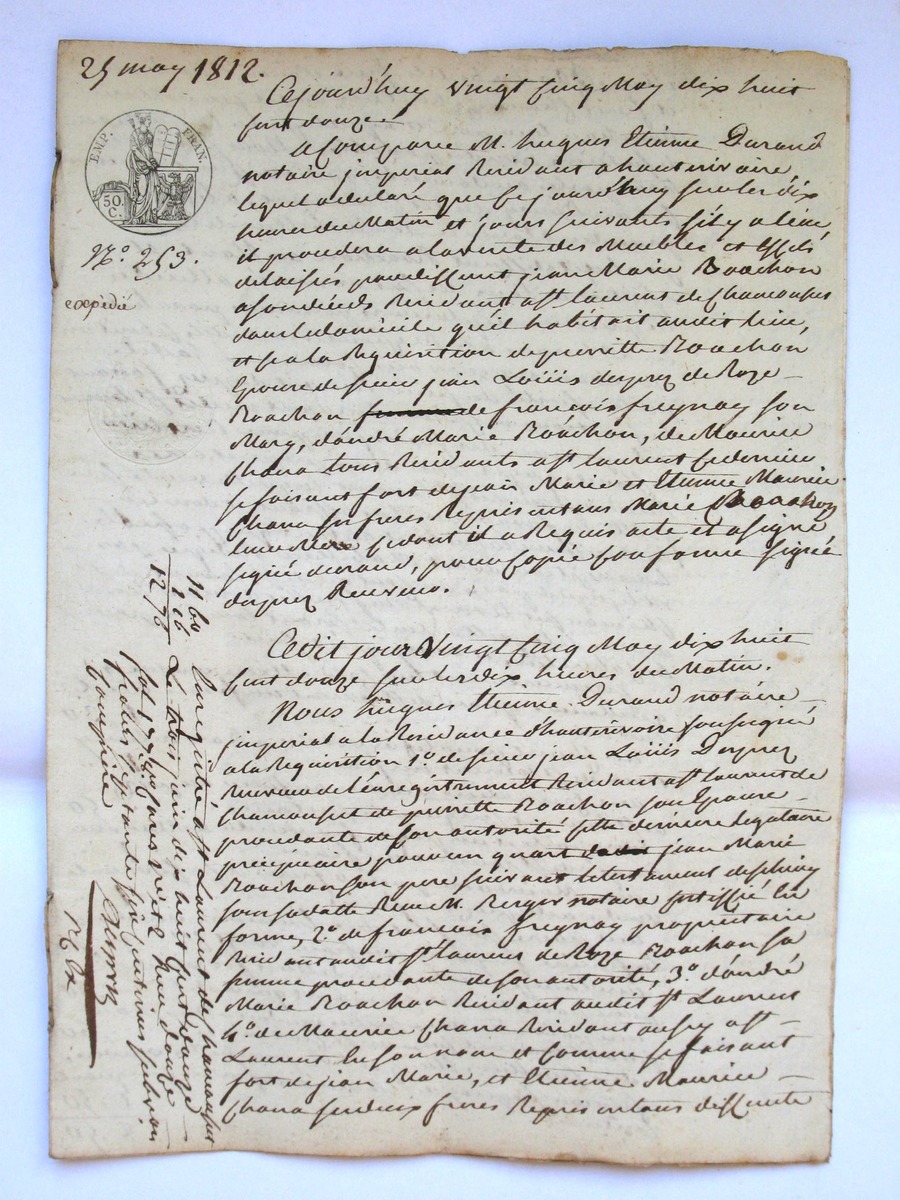 25 may 1812.
EMP. FRAN.
50. C.
N.o 253.
expédié
Cejourd'huy vingt cinq May dix huit
cent douze.
a Comparu M. hugues Etienne Durand
notaire imperial Residant a hauterivoire,
lequel a declaré que ce jourd'huy sur les dix
heures du Matin et jours suivants s'il y a lieu,
il procedera a la vente des Meubles et Effets
delaissés par deffunt jean Marie Roachon
a son déceds Residant a st laurent de Chamousset
dans le domicile qu'il habitait audit lieu,
et ce a la Requisition de pierrette Roachon
Epouse de sieur jean Loüis deprez de Roze
Roachon femme de francois freynay son
Mary, d'andré Marie Roachon, de Maurice
Chana tous Residants a st laurent ce dernier
se faisant fort de jean Marie et Etienne Maurice
Chana ses freres Representans Marie Roachon
leur Mere de dont il a Requis acte et a signé
signé durand, pour Copie Conforme signé
deprez Receveur.
Cedit jour Vingt cinq May dix huit
cent douze sur les dix heures du Matin.
Nous hugues Etienne Durand notaire
imperial a la Residance d'hauterivoire soussigné
a la Requisition 1.o de sieur jean Loüis Deprez
Receveur de l'enregistrement Residant a st laurent de
Chamousset de pierrette Roachon son Epouse
procedante de son autorité cette derniere legataire
préciputaire pour un quart jean Marie
Roachon son pere suivant le testament
sous sa datte Recu M. Berger notaire certiffié en
forme, 2.o de francois freynay proprietaire
Residant audit st laurens de Roze Roachon sa
femme procedante de son autorité, 3.o d'andré
Marie Roachon Residant audit st Laurent
4.o de Maurice Chana Residant aussy a st
Laurent En son nom et Comme se faisant
fort de jean Marie, et Etienne Maurice
Chana ses deux freres Representans deffunte
11 60
1 16
12, 76
Enregistré a st Laurent de Chamousset
Le trois juin dix huit cent douze
fol. 177 Recu onze
francs soixante centimes subvention
Comprise
deprez